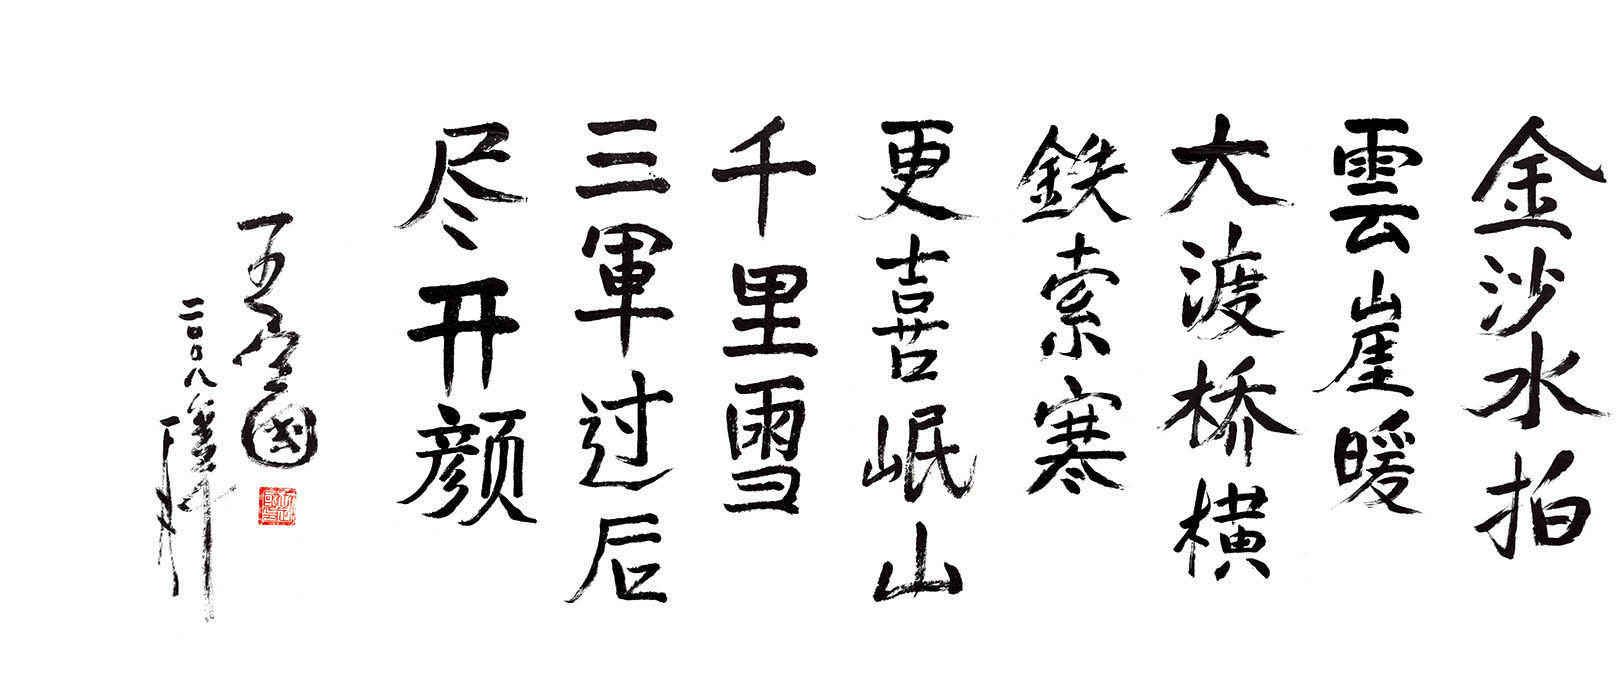 金沙水拍
雲崖暖
大渡桥横
鉄索寒
更喜岷山
千里雪
三軍过后
尽开颜
王定國
二〇〇八